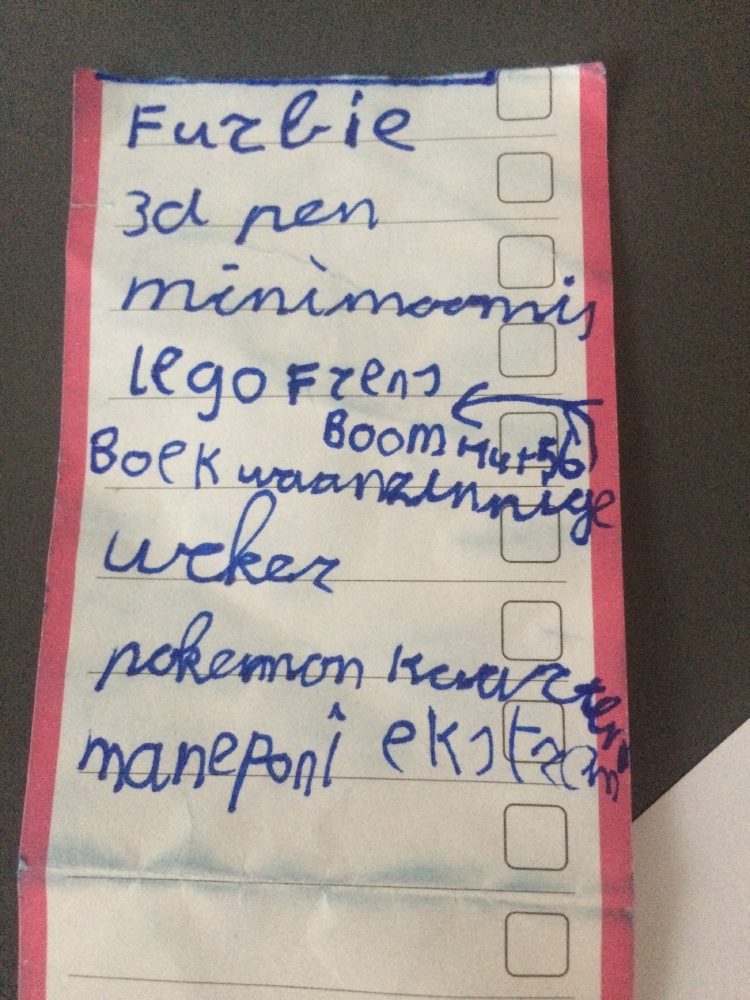 Furbie
3d pen
minimoomis
lego Frens
Boek waanzinnige
Boom
weker
pokemon kaarten
maneponi ekstrem